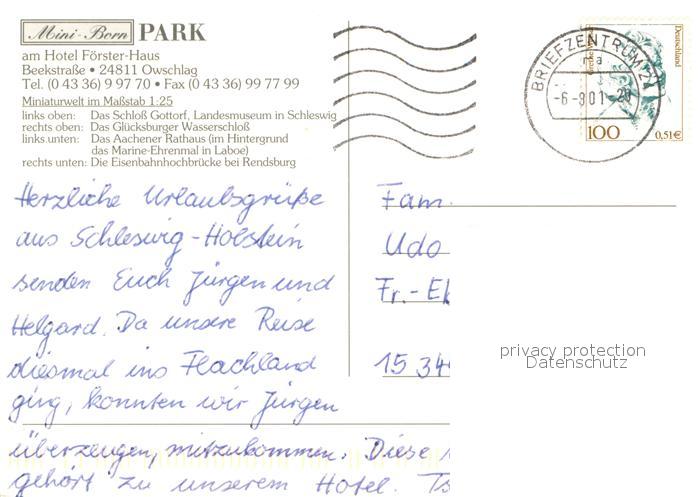 Mini-Born PARK
am Hotel Förster-Haus
Beekstraße • 24811 Owschlag
Tel. (0 43 36) 9 97 70 • Fax (0 43 36) 99 77 99
Miniaturwelt im Maßstab 1:25
links oben: Das Schloß Gottorf, Landesmuseum in Schleswig
rechts oben: Das Glücksburger Wasserschloß
links unten: Das Aachener Rathaus (im Hintergrund
das Marine-Ehrenmal in Laboe)
rechts unten: Die Eisenbahnhochbrücke bei Rendsburg
BRIEFZENTRUM 24
-6.-8 01-20
Deutschland
100
0,51€
Herzliche Urlaubsgrüße
aus Schleswig-Holstein
senden Euch Jürgen und
Helgard. Da unsere Reise
diesmal ins Flachland
ging, konnten wir Jürgen
überzeugen, mitzukommen. Diese
gehört zu unserem Hotel.
Fam.
Udo
Fr.-Eb
15 344
privacy protection
Datenschutz